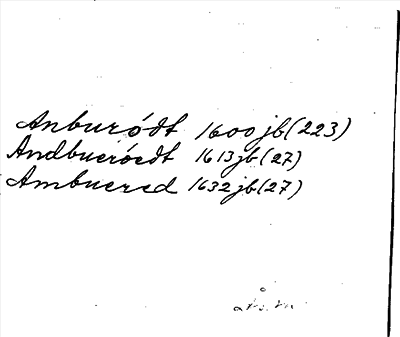 Anburödt 1600 jb (223)
Andbueröedt 1613 jb (27)
Ambuered 1632 jb (27)